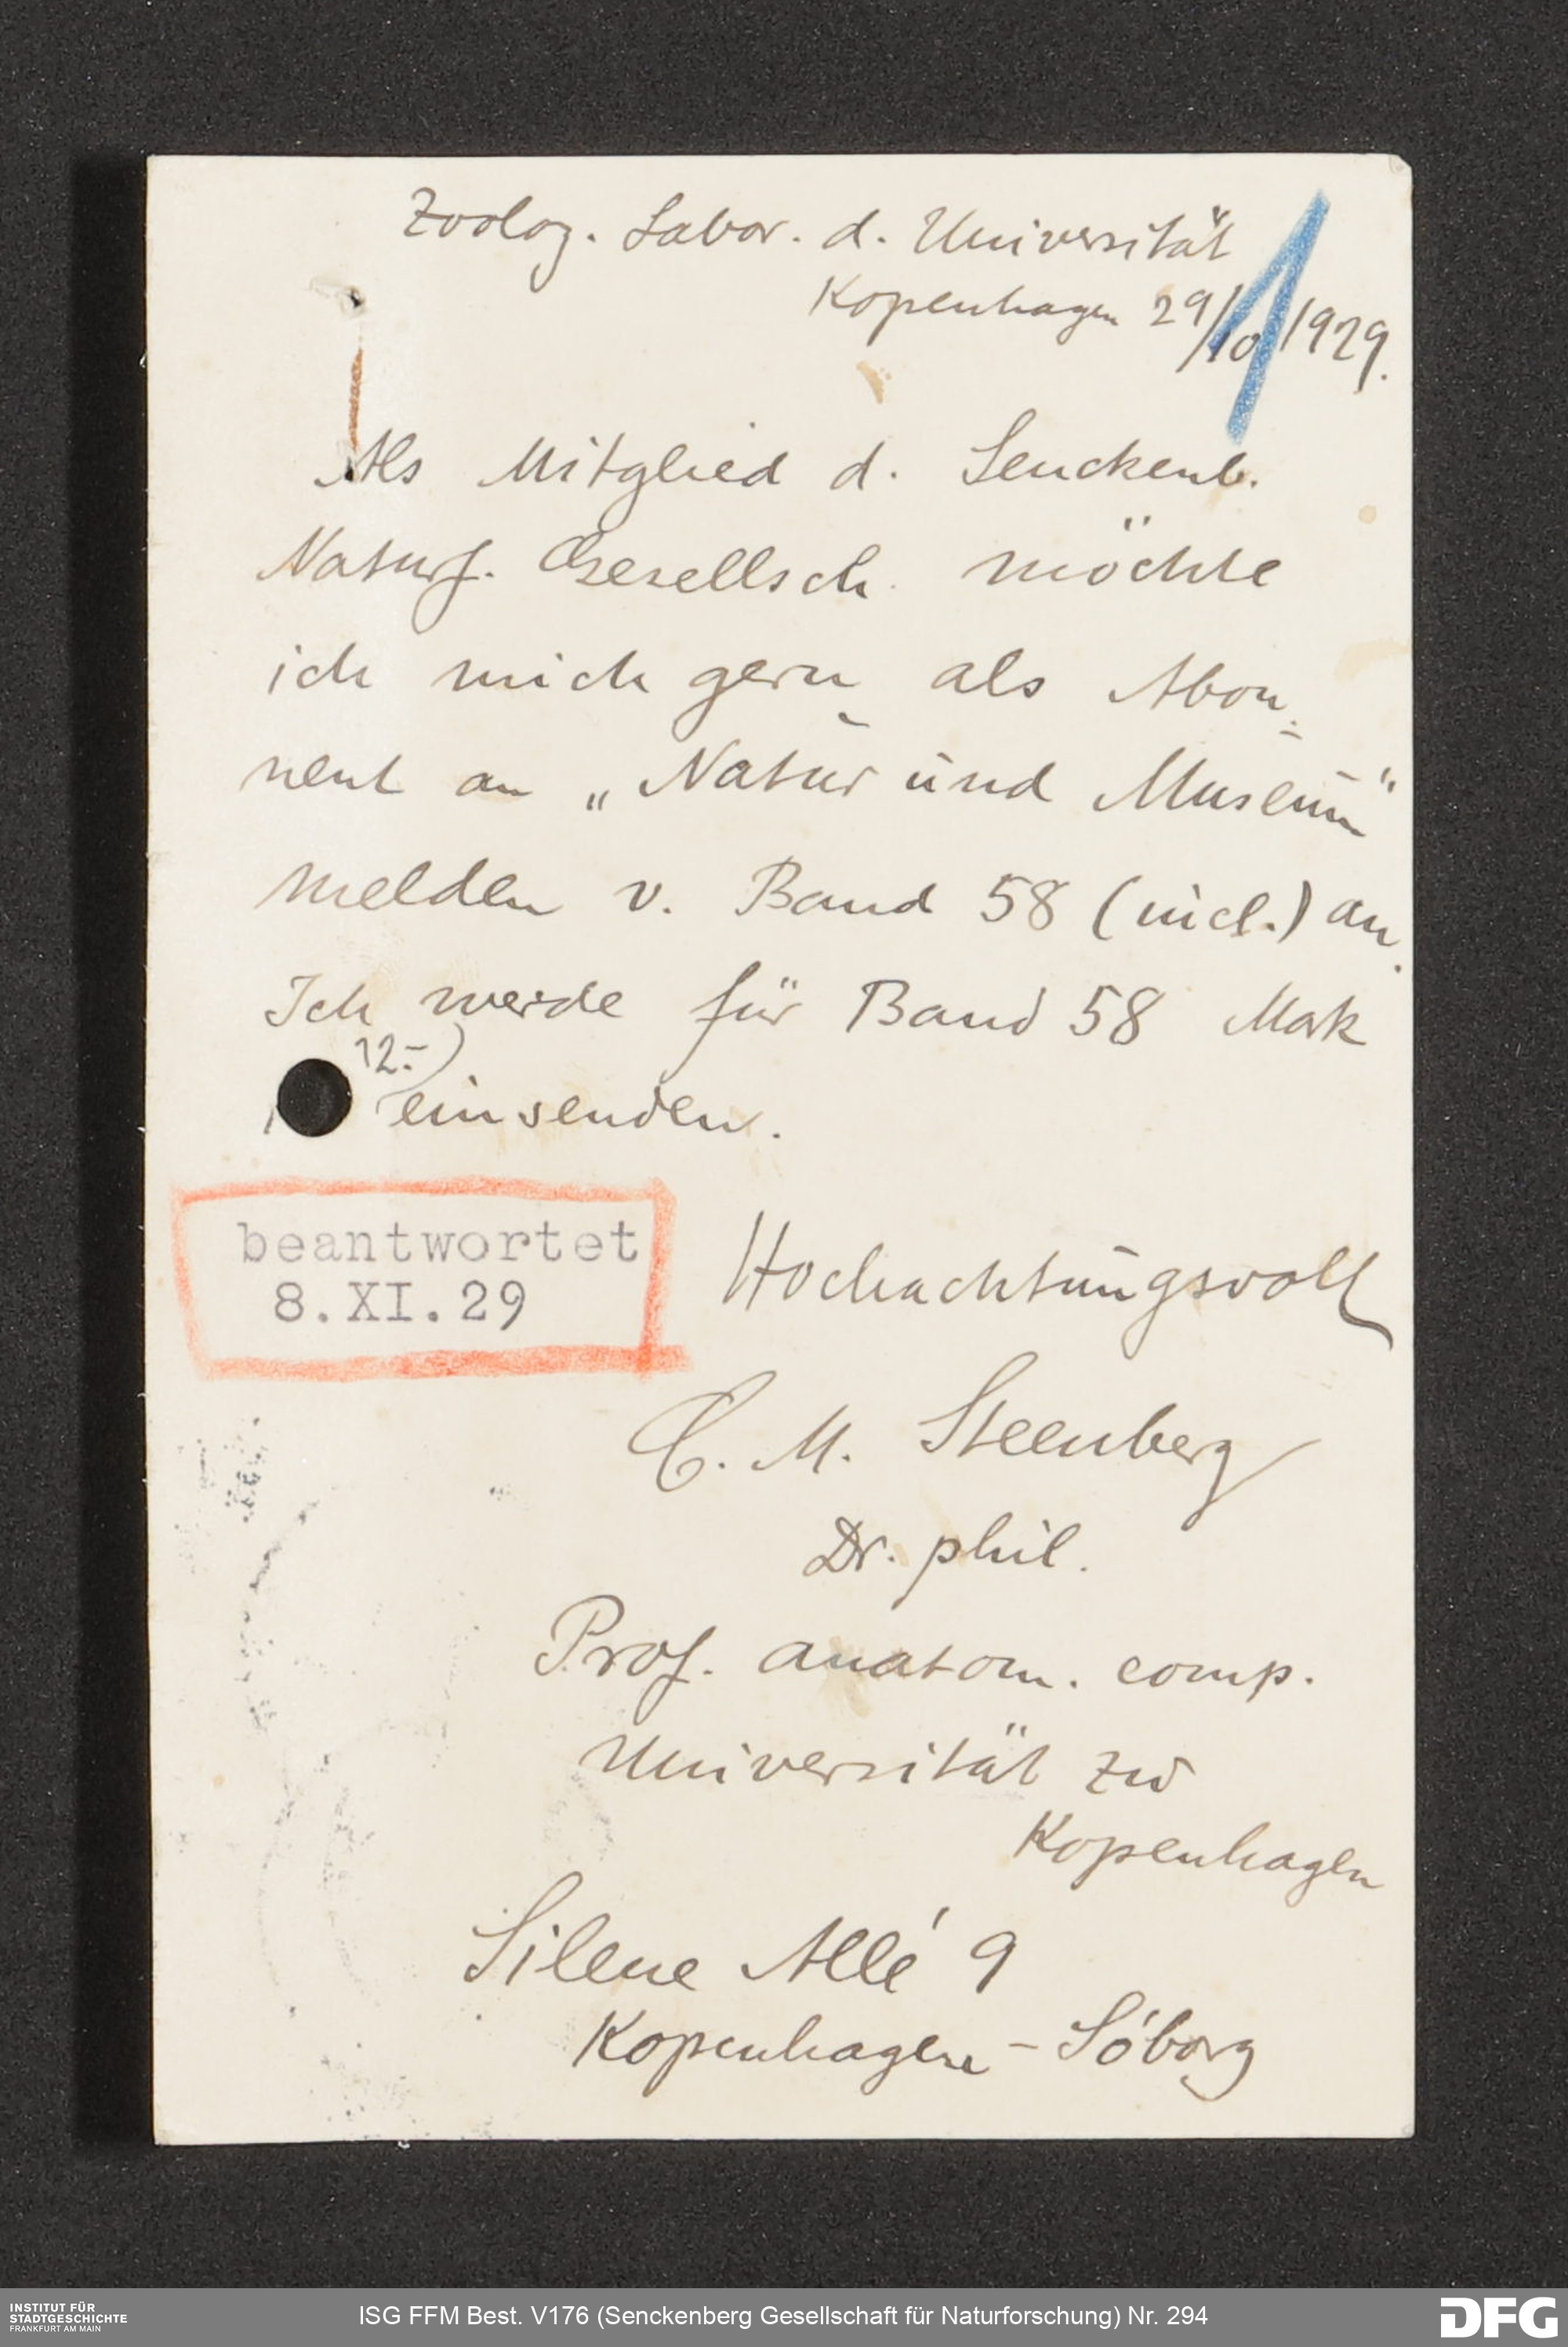 Zoolog. Labor. d. Universität
Kopenhagen 29/10 1929.
Als Mitglied d. Senckenb.
Naturf. Gesellsch. möchte
ich mich gern als Abon-
nent an „Natur und Museum“
melden v. Band 58 (incl.) an.
Ich werde für Band 58 Mark
12.-)
einsenden.
beantwortet
8.XI.29
Hochachtungsvoll
C. M. Steenberg
Dr. phil.
Prof. anatom. comp.
Universität zu
Kopenhagen
Silene Allé 9
Kopenhagen - Sóborg
INSTITUT FÜR
STADTGESCHICHTE
FRANKFURT AM MAIN
ISG FFM Best. V176 (Senckenberg Gesellschaft für Naturforschung) Nr. 294
DFG